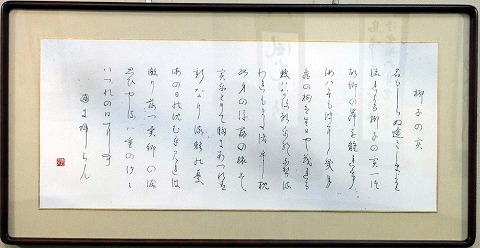 椰子の実
名もしらぬ遠きしまより
流れよる椰子の実一つ
故郷の岸を離れて
汝はそも波に幾月
旧の樹は生ひや茂れる
枝はなほ影をやなせる
われもまた渚を枕
孤身の浮寝の旅ぞ
実をとりて胸にあつれば
新なり流離の憂
海の日の沈むを見れば
激り落つ異郷の涙
思ひやる八重の汐々
いづれの日にか
国に帰らん